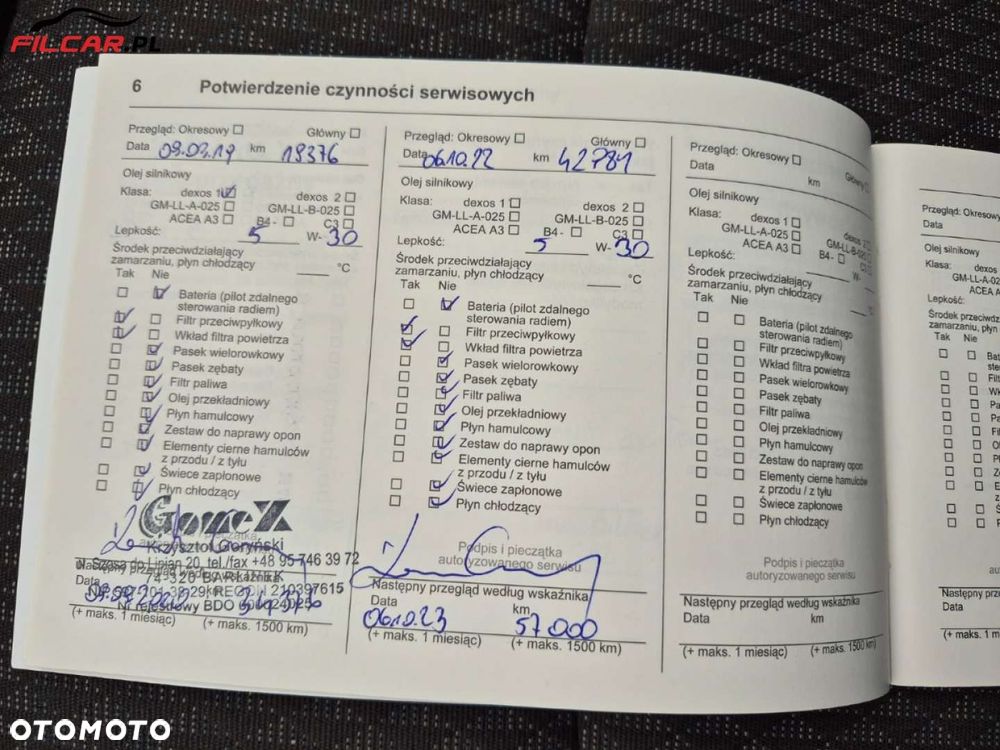 FILCAR.PL
6 Potwierdzenie czynności serwisowych
Przegląd: Okresowy Główny
Data 09.09.19 km 19376
Olej silnikowy
Klasa: dexos 1 dexos 2
GM-LL-A-025 GM-LL-B-025
ACEA A3 B4- C3
Lepkość: 5 W- 30
Środek przeciwdziałający
zamarzaniu, płyn chłodzący °C
Tak Nie
Bateria (pilot zdalnego
sterowania radiem)
Filtr przeciwpyłkowy
Wkład filtra powietrza
Pasek wielorowkowy
Pasek zębaty
Filtr paliwa
Olej przekładniowy
Płyn hamulcowy
Zestaw do naprawy opon
Elementy cierne hamulców
z przodu / z tyłu
Świece zapłonowe
Płyn chłodzący
GomeX
Krzysztof Goryński
ul. Szosa do Lipian 20, tel./fax +48 95 746 39 72
74-320 BARLINEK
REGON 210397615
Nr rejestrowy BDO
Data
(+ maks. 1 miesiąc) (+ maks. 1500 km)
Przegląd: Okresowy Główny
Data 06.10.22 km 42781
Olej silnikowy
Klasa: dexos 1 dexos 2
GM-LL-A-025 GM-LL-B-025
ACEA A3 B4- C3
Lepkość: 5 W- 30
Środek przeciwdziałający
zamarzaniu, płyn chłodzący °C
Tak Nie
Bateria (pilot zdalnego
sterowania radiem)
Filtr przeciwpyłkowy
Wkład filtra powietrza
Pasek wielorowkowy
Pasek zębaty
Filtr paliwa
Olej przekładniowy
Płyn hamulcowy
Zestaw do naprawy opon
Elementy cierne hamulców
z przodu / z tyłu
Świece zapłonowe
Płyn chłodzący
Podpis i pieczątka
autoryzowanego serwisu
Następny przegląd według wskaźnika
Data km
06.10.23 57000
(+ maks. 1 miesiąc) (+ maks. 1500 km)
Przegląd: Okresowy Główny
Data km
Olej silnikowy
Klasa: dexos 1 dexos 2
GM-LL-A-025 GM-LL-B-025
ACEA A3 B4- C3
Lepkość: W-
Środek przeciwdziałający
zamarzaniu, płyn chłodzący °C
Tak Nie
Bateria (pilot zdalnego
sterowania radiem)
Filtr przeciwpyłkowy
Wkład filtra powietrza
Pasek wielorowkowy
Pasek zębaty
Filtr paliwa
Olej przekładniowy
Płyn hamulcowy
Zestaw do naprawy opon
Elementy cierne hamulców
z przodu / z tyłu
Świece zapłonowe
Płyn chłodzący
Podpis i pieczątka
autoryzowanego serwisu
Następny przegląd według wskaźnika
Data km
(+ maks. 1 miesiąc) (+ maks. 1500 km)
Przegląd: Okresowy
Data
Olej silnikowy
Klasa: dexos
GM-LL-A-025
ACEA A
Lepkość:
Środek przeciwdz
zamarzaniu, płyn
Tak Nie
Następny prz
Data
(+ maks. 1 m
OTOMOTO